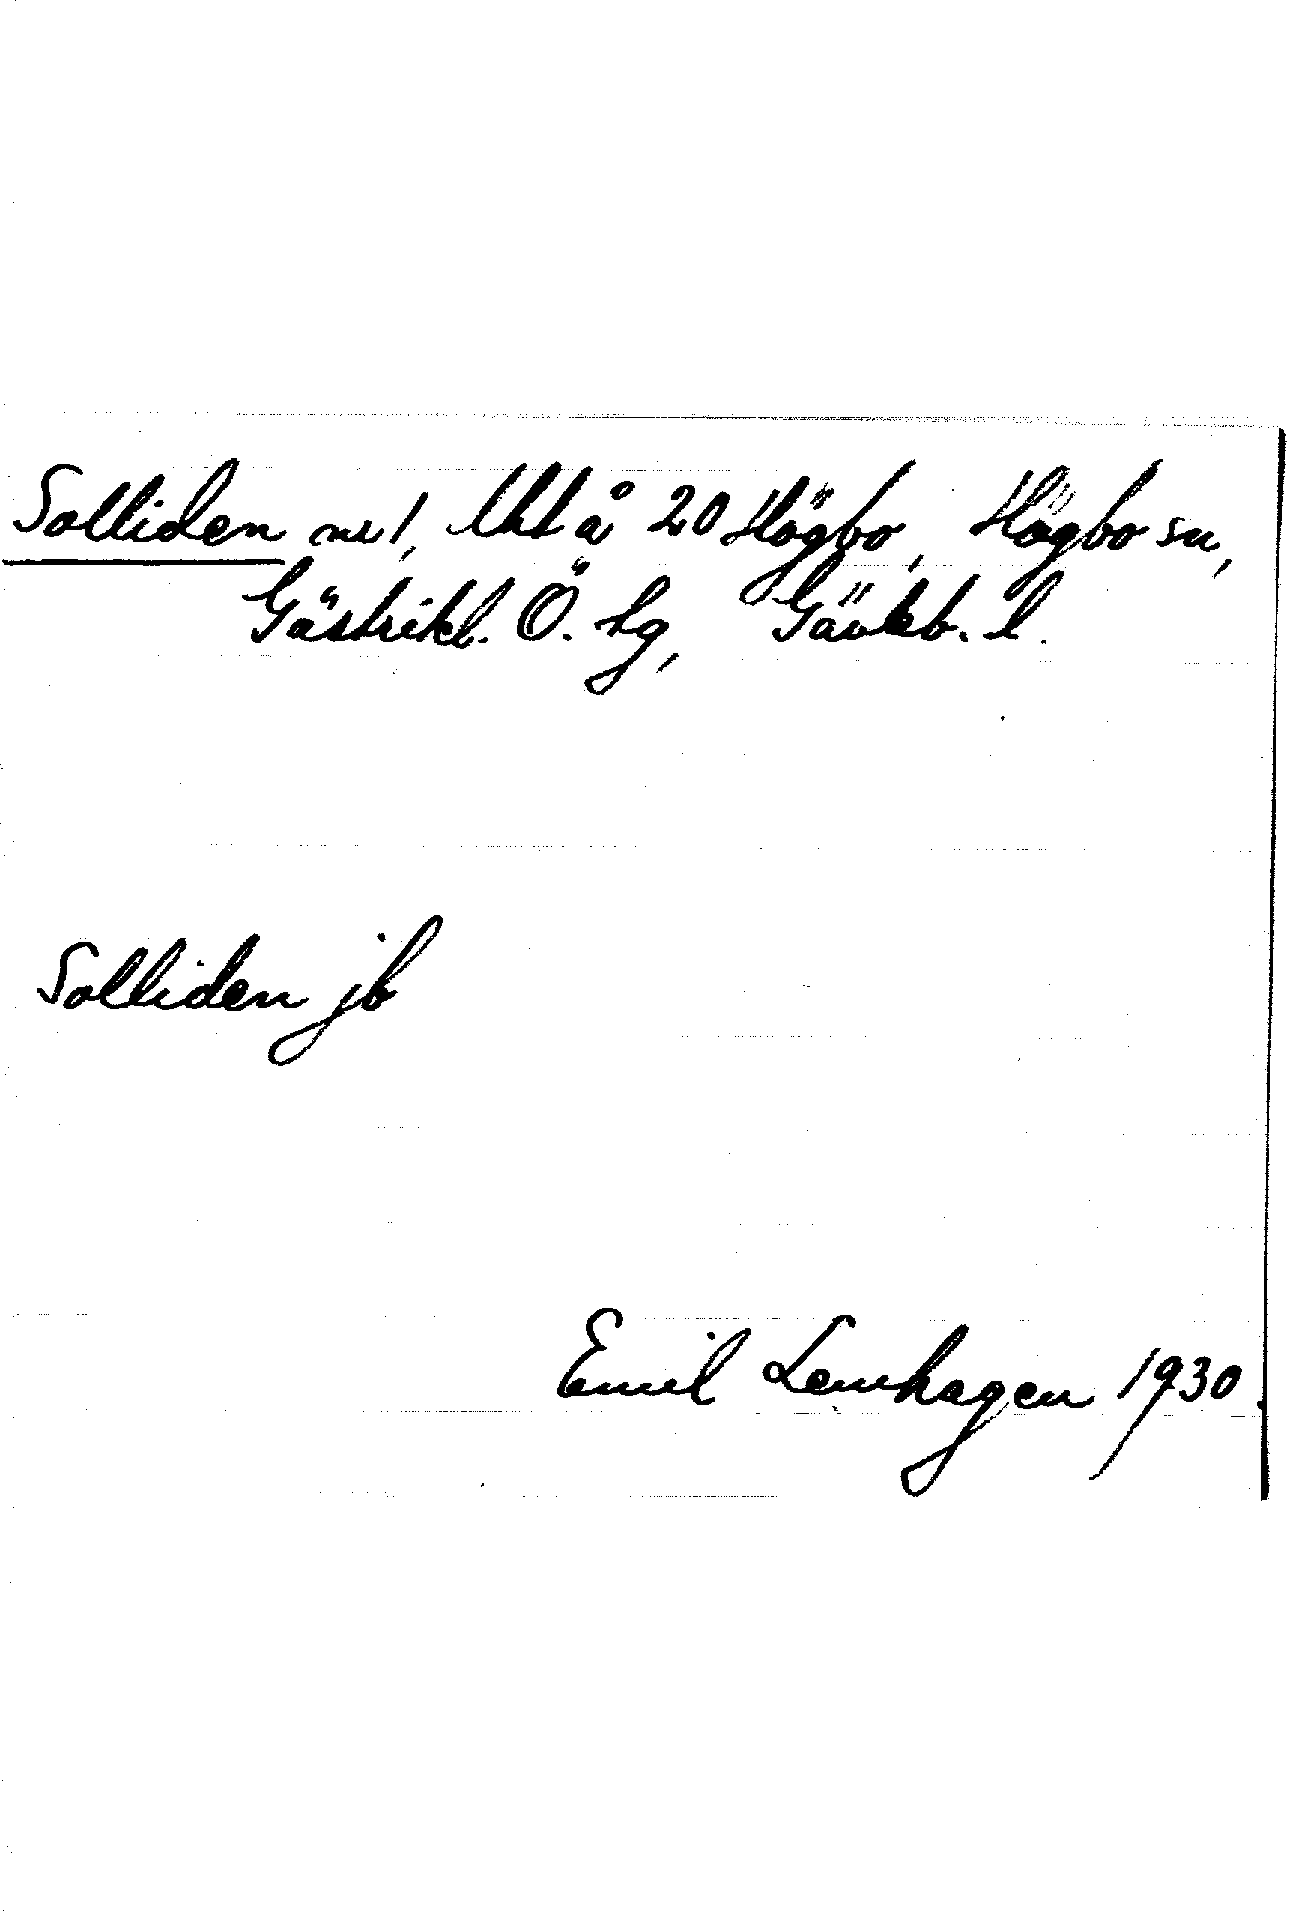 Solliden nr 1, Uht å 20 Högbo, Högbo sn,
Gästrikl. Ö. hg, Gävleb. l.
Solliden jb
Emil Lenhagen 1930.